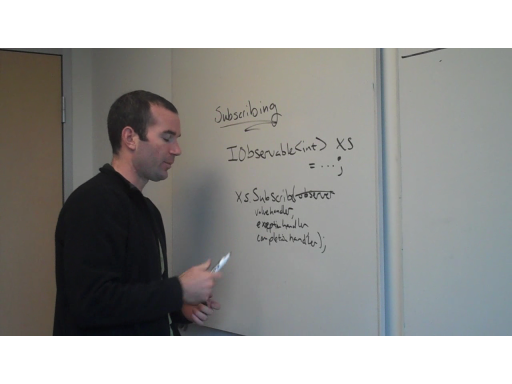 Subscribing
IObservable<int> xs
= ...;
xs.Subscribe(observer
valuehandler,
exceptionhandler
completionhandler);